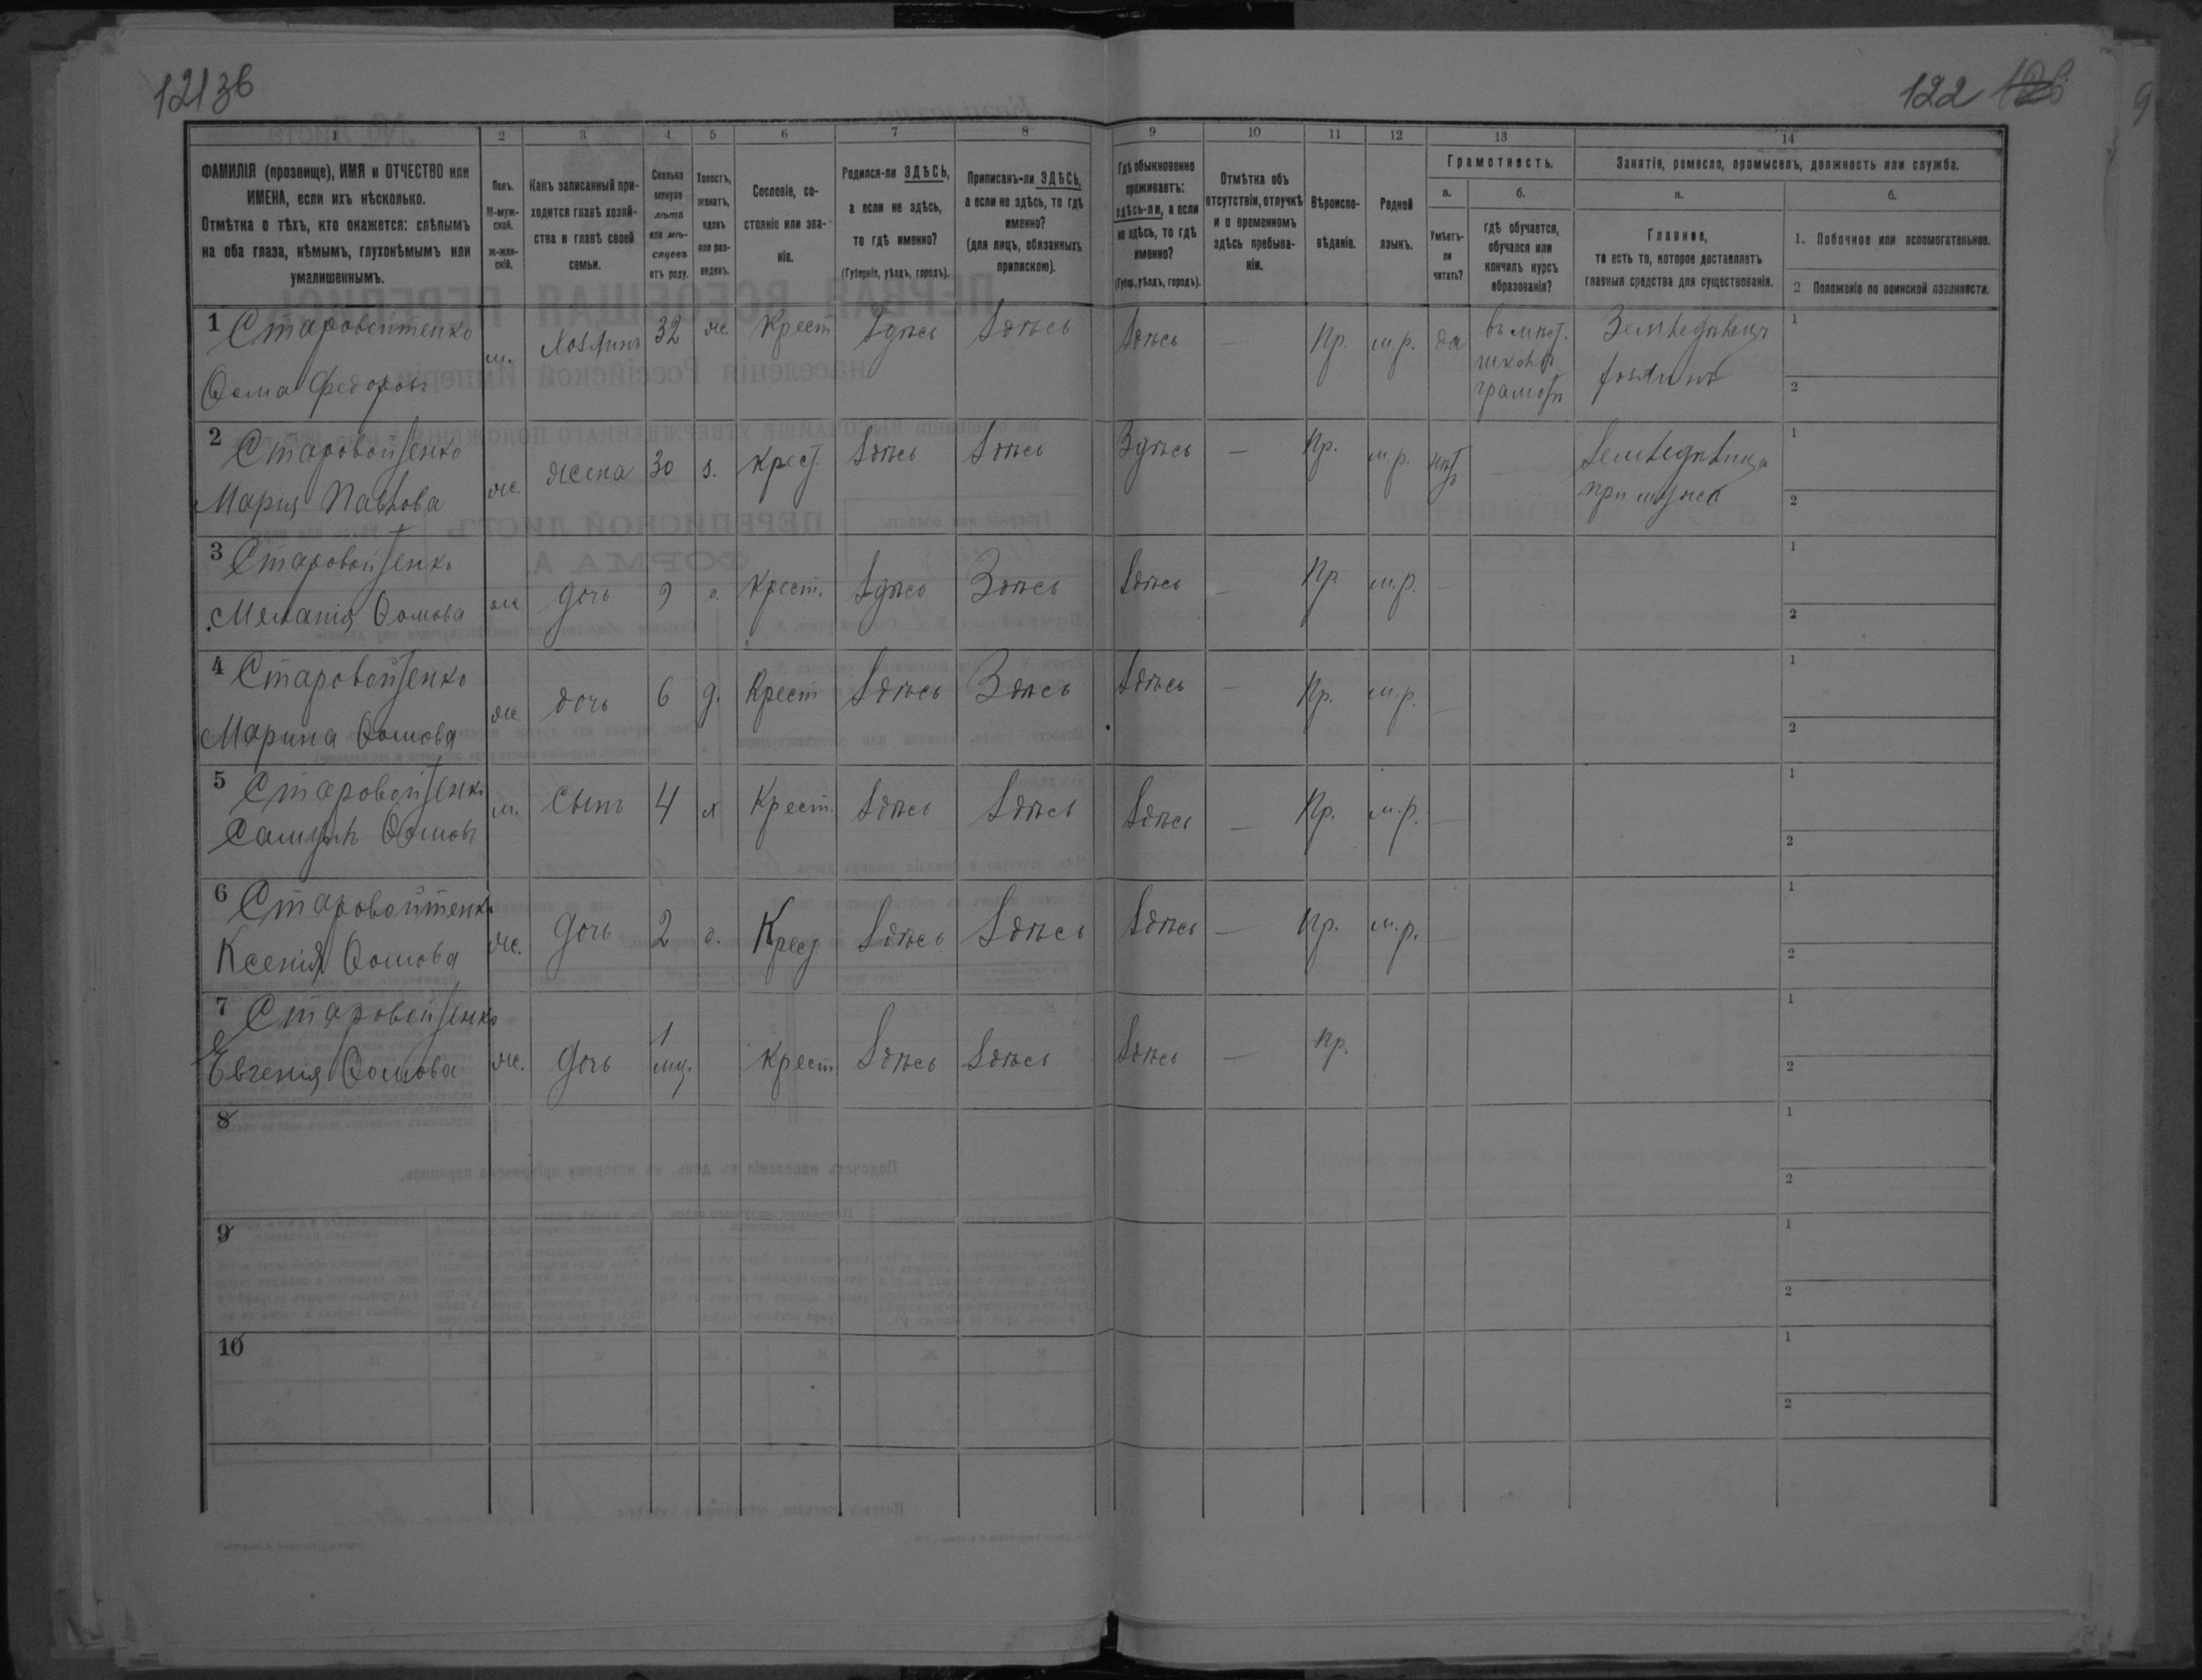 121 зв
122
1 2 3 4 5 6 7 8 9 10 11 12 13 14
ФАМИЛІЯ (прозвище), ИМЯ и ОТЧЕСТВО или
ИМЕНА, если ихъ нѣсколько.
Отмѣтка о тѣхъ, кто окажется: слѣпымъ
на оба глаза, нѣмымъ, глухонѣмымъ или
умалишеннымъ.
Полъ.
М-муж-
ской.
Ж-жен-
скій.
Какъ записанный при-
ходится главѣ хозяй-
ства и главѣ своей
семьи.
Сколько
минуло
лѣтъ
или мѣ-
сяцевъ
отъ роду.
Холостъ,
женатъ,
вдовъ
или раз-
веденъ.
Сословіе, со-
стояніе или зва-
ніе.
Родился-ли ЗДѢСЬ,
а если не здѣсь,
то гдѣ именно?
(Губернія, уѣздъ, городъ).
Приписанъ-ли ЗДѢСЬ,
а если не здѣсь, то гдѣ
именно?
(для лицъ, обязанныхъ
припискою).
Гдѣ обыкновенно
проживаетъ:
здѣсь-ли, а если
не здѣсь, то гдѣ
именно?
(Губ., уѣздъ, городъ).
Отмѣтка объ
отсутствіи, отлучкѣ
и о временномъ
здѣсь пребыва-
ніи.
Вѣроиспо-
вѣданіе.
Родной
языкъ.
Грамотность.
а.
Умѣетъ-
ли
читать?
б.
гдѣ обучается,
обучался или
кончилъ курсъ
образованія?
Занятіе, ремесло, промыселъ, должность или служба.
а.
Главное,
то есть то, которое доставляетъ
главныя средства для существованія.
б.
1. Побочное или вспомогательное.
2 Положеніе по воинской повинности.
1 Старовойтенко м. Хозяинъ 32 ж Крест Здѣсь Здѣсь Здѣсь — Пр. м.р. да въ мѣст. Земледѣлецъ 1
школѣ
Ѳома Федоровъ грамоты хозяинъ 2
2 Старовойтенко ж. жена 30 з. крест. Здѣсь Здѣсь Здѣсь — Пр. м.р. нѣтъ — Земледѣлица 1
Марія Павлова при мужѣ 2
3 Старовойтенко ж дочь 9 д. Крест. Здѣсь Здѣсь Здѣсь — Пр м.р. — 1
Меланія Ѳомова 2
4 Старовойтенко ж. дочь 6 д. Крест Здѣсь Здѣсь Здѣсь — Пр. м.р. — 1
Марина Ѳомова 2
5 Старовойтенко м. сынъ 4 х Крест. Здѣсь Здѣсь Здѣсь — Пр. м.р. — 1
Самуилъ Ѳомовъ 2
6 Старовойтенко ж. дочь 2 д. Крест Здѣсь Здѣсь Здѣсь — Пр. м.р. — 1
Ксенія Ѳомова 2
7 Старовойтенко ж. дочь 1 мц. Крест. Здѣсь Здѣсь Здѣсь — Пр. 1
Евгенія Ѳомова 2
8 1
2
9 1
2
10 1
2